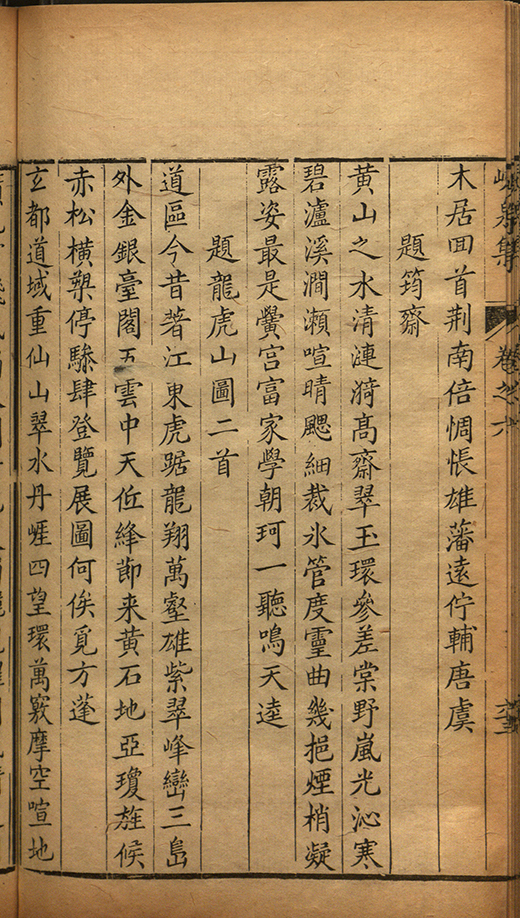 峴泉集 卷之六
木居回首荆南倍惆悵雄藩遠佇輔唐虞
題筠齋
黄山之水清漣漪髙齋翠玉環參差棠野嵐光沁寒
碧瀘溪澗瀬喧晴颸細裁氷管度靈曲幾挹煙梢凝
露姿最是黌宫富家學朝珂一聽鳴天逵
題龍虎山圖二首
道區今昔著江東虎踞龍翔萬壑雄紫翠峰巒三島
外金銀臺閣五雲中天低絳節来黄石地亞瓊旌候
赤松横槊停驂肆登覽展圖何俟覓方蓬
玄都道域重仙山翠水丹崕四望環萬竅摩空喧地